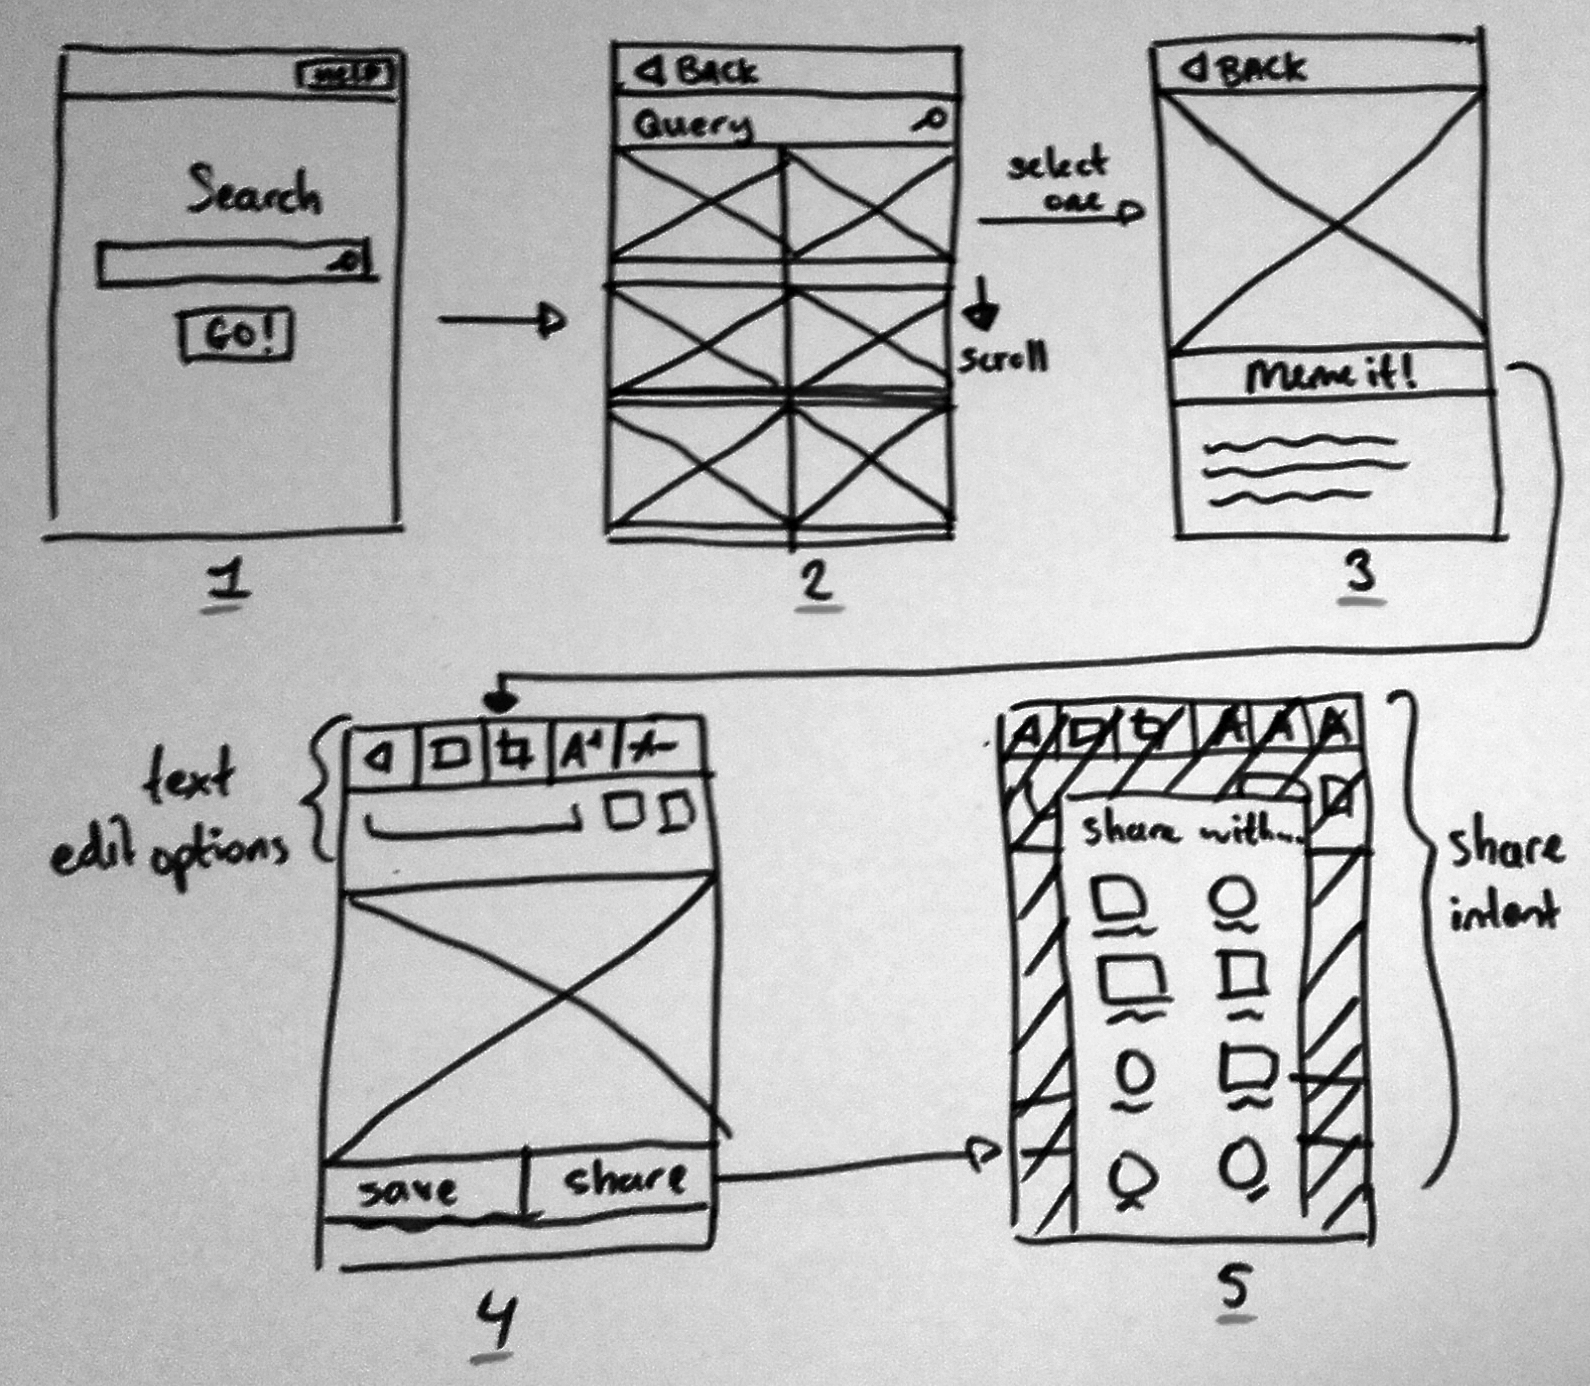 HELP
Search
GO!
1
BACK
Query
select
one
scroll
2
BACK
Meme it!
3
text
edit options
A+
A-
save
share
4
A A A
share with...
share
intent
5